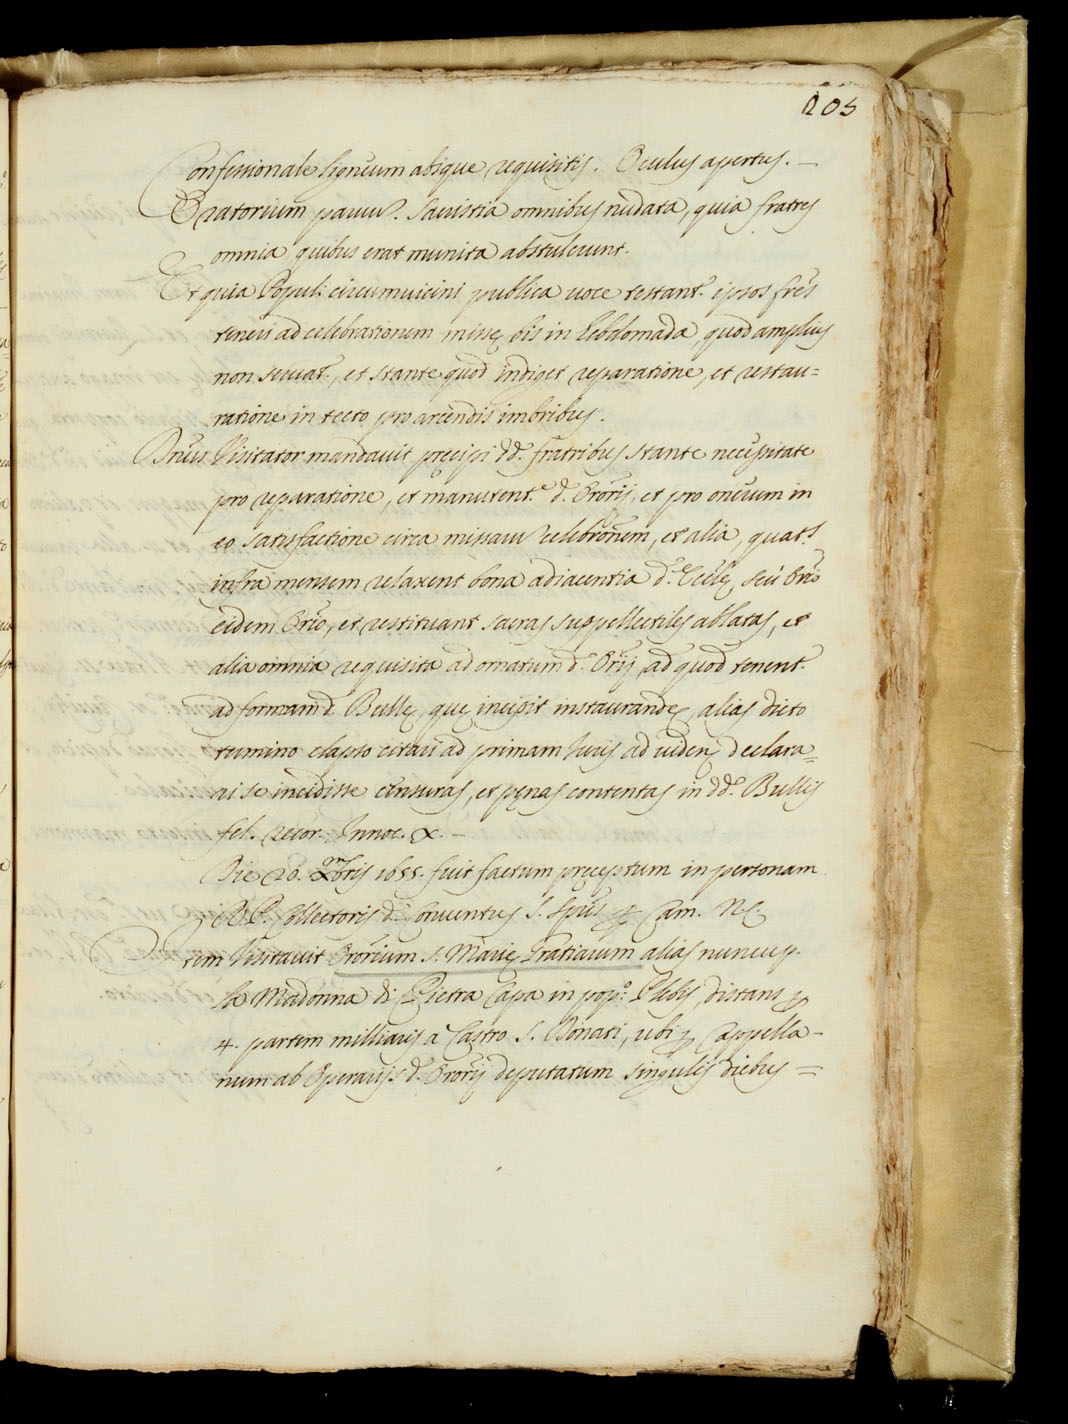 205
Confessionale ligneum absque requisitis. Oculus apertus. —
Oratorium parvum. Sacristia omnibus nudata, quia fratres
omnia quibus erat munita abstulerunt.
Et quia Populi circumvicini publica voce testant.r ipsos fr̃es
teneri ad celebrationem missę bis in hebdomada, quod amplius
non servat.r, et stante quod indiget reparatione, et restau=
ratione in tecto pro arcendis imbribus.
Dñus Visitator mandavit pręcipi dd.s fratribus stante necessitate
pro reparatione, et manutent.e d.i Ororij, et pro onerum in
eo satisfactione circa missarum celebrõnem, et alia, quat.s
infra mensem relaxent bona adiacentia d.ę Ecclę seu Orio
eidem Orio, et restituant sacras suppellectiles ablatas, et
alia omnia requisita ad ornatum d.i Orij, ad quod tenent.r
ad formam d. Bullę, quę incipit instaurandę, alias dicto
termino elapso citari ad primam Juris ad viden. declara=
ri se incidisse censuras, et pęnas contentas in dd.s Bullis
fel. recor. Innoc. X. —
Die 20. 9mbris 1655. fuit factum pręceptum in personam
R. P. Collectoris d.i Conventus S. Spũs ꝑ Cam. Nĩ.
Item Visitavit Ororium S. Marię Gratiarum alias nuncup.
la Madonna di Pietra Capa in pop.o Plebis, distans ꝑ
4. partem milliaris a Castro S. Donati, ubi ꝑ Cappella-
num ab Operarijs d.i Ororij deputatum singulis diebus =